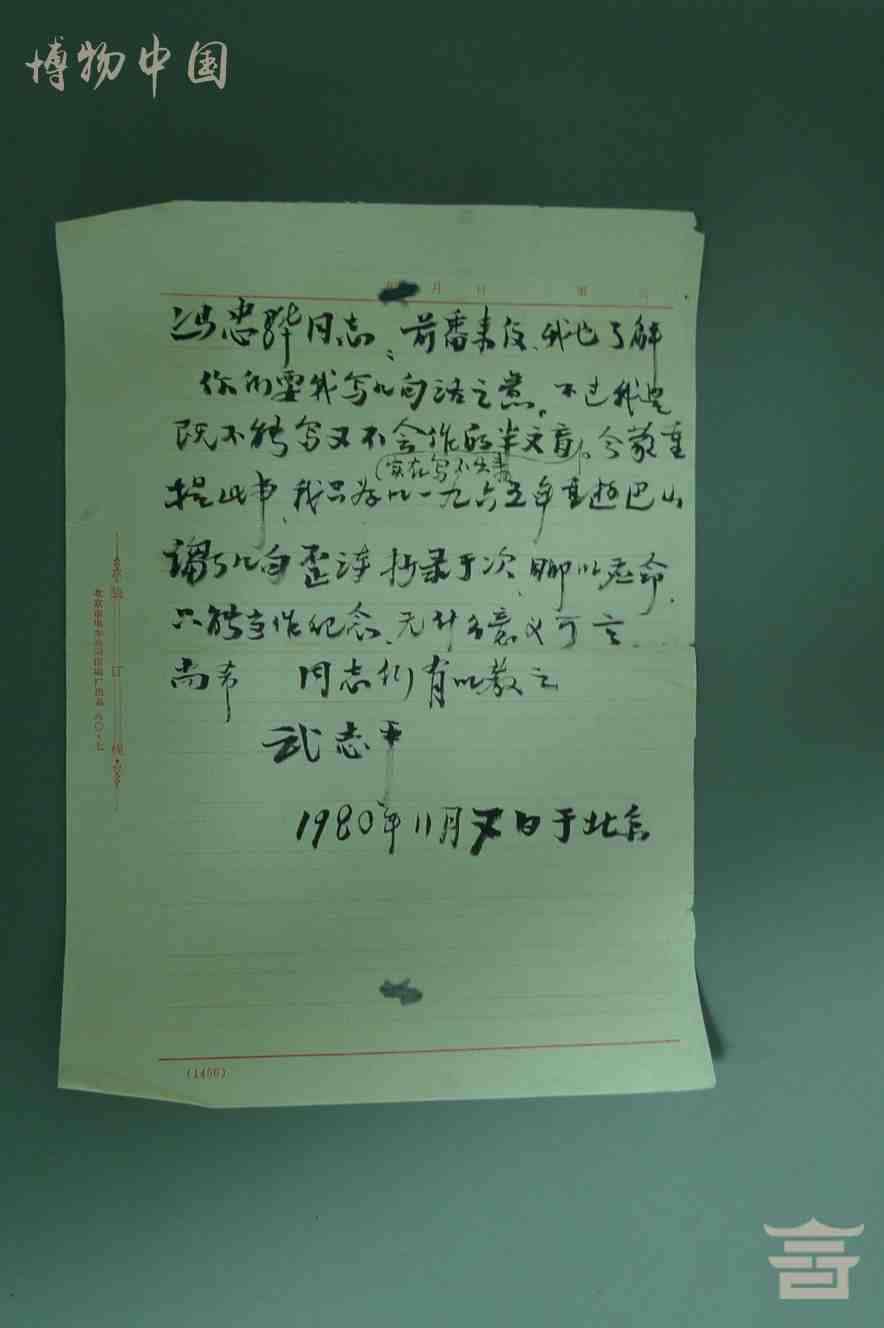 博物中国
年 月 日 第 页
冯忠骅同志：前番来 我也了解
你们要我写几句话之意。不过我
既不能写又不会作 文章。今蒙重
（实在写不出来
提此事、我只好以一九六五年重 巴山
诌几句歪诗抄录于次、聊以应命、
只能当作纪念、无什么意义可言
尚希 同志们有以教之
武志平
1980年11月 日于北京
装 订 线
(1456)